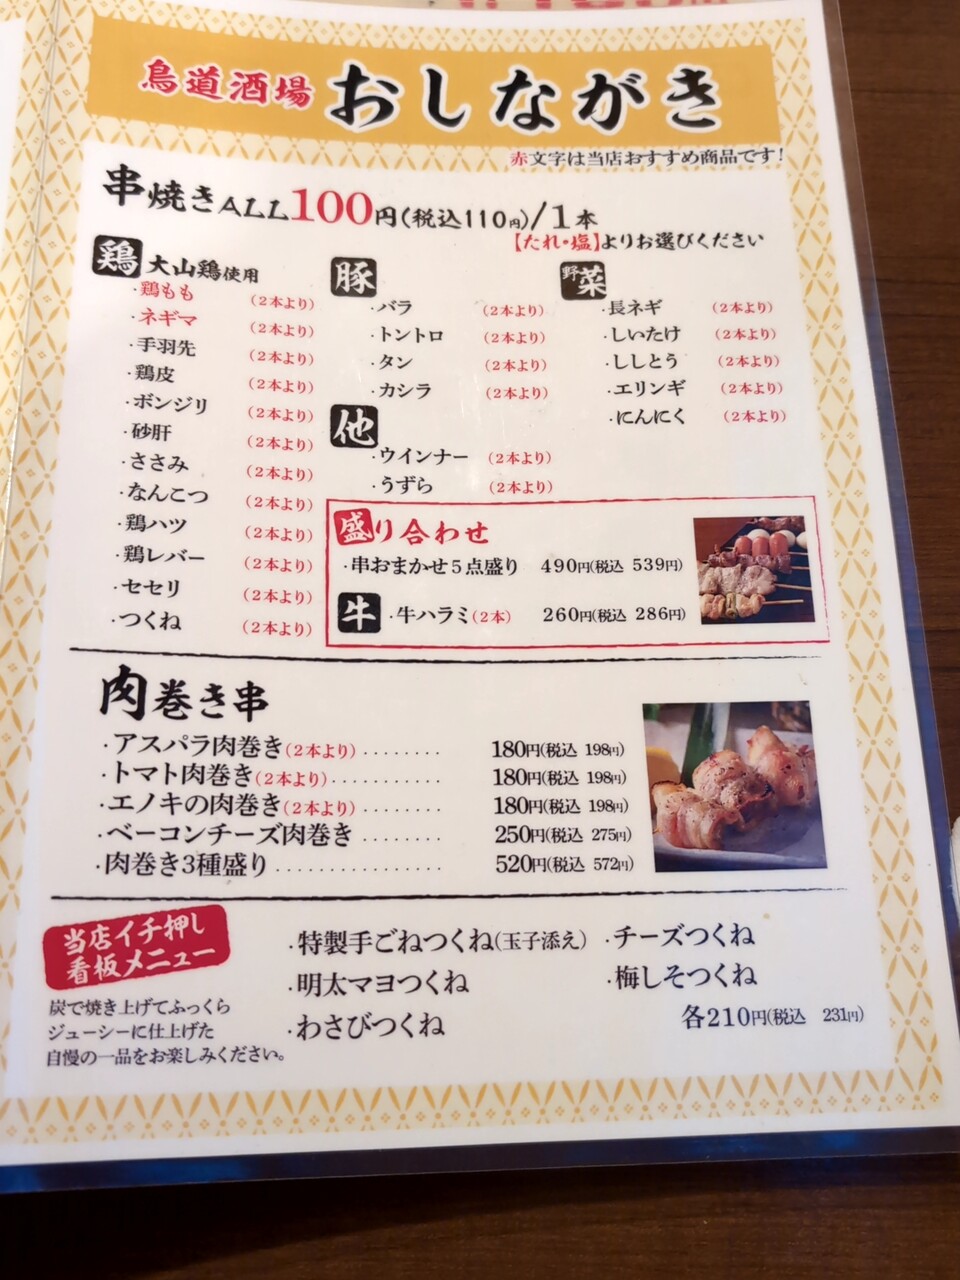 鳥道酒場 おしながき
赤文字は当店おすすめ商品です!
串焼きALL100円(税込110円)/1本
【たれ・塩】よりお選びください
鶏 大山鶏使用
・鶏もも (2本より)
・ネギマ (2本より)
・手羽先 (2本より)
・鶏皮 (2本より)
・ボンジリ (2本より)
・砂肝 (2本より)
・ささみ (2本より)
・なんこつ (2本より)
・鶏ハツ (2本より)
・鶏レバー (2本より)
・セセリ (2本より)
・つくね (2本より)
豚
・バラ (2本より)
・トントロ (2本より)
・タン (2本より)
・カシラ (2本より)
他
・ウインナー (2本より)
・うずら (2本より)
野菜
・長ネギ (2本より)
・しいたけ (2本より)
・ししとう (2本より)
・エリンギ (2本より)
・にんにく (2本より)
盛り合わせ
・串おまかせ5点盛り 490円(税込 539円)
牛 ・牛ハラミ(2本) 260円(税込 286円)
肉巻き串
・アスパラ肉巻き(2本より)........ 180円(税込 198円)
・トマト肉巻き(2本より)........... 180円(税込 198円)
・エノキの肉巻き(2本より)........ 180円(税込 198円)
・ベーコンチーズ肉巻き ........ 250円(税込 275円)
・肉巻き3種盛り ................. 520円(税込 572円)
当店イチ押し
看板メニュー
炭で焼き上げてふっくら
ジューシーに仕上げた
自慢の一品をお楽しみください。
・特製手ごねつくね(玉子添え) ・チーズつくね
・明太マヨつくね ・梅しそつくね
・わさびつくね 各210円(税込 231円)